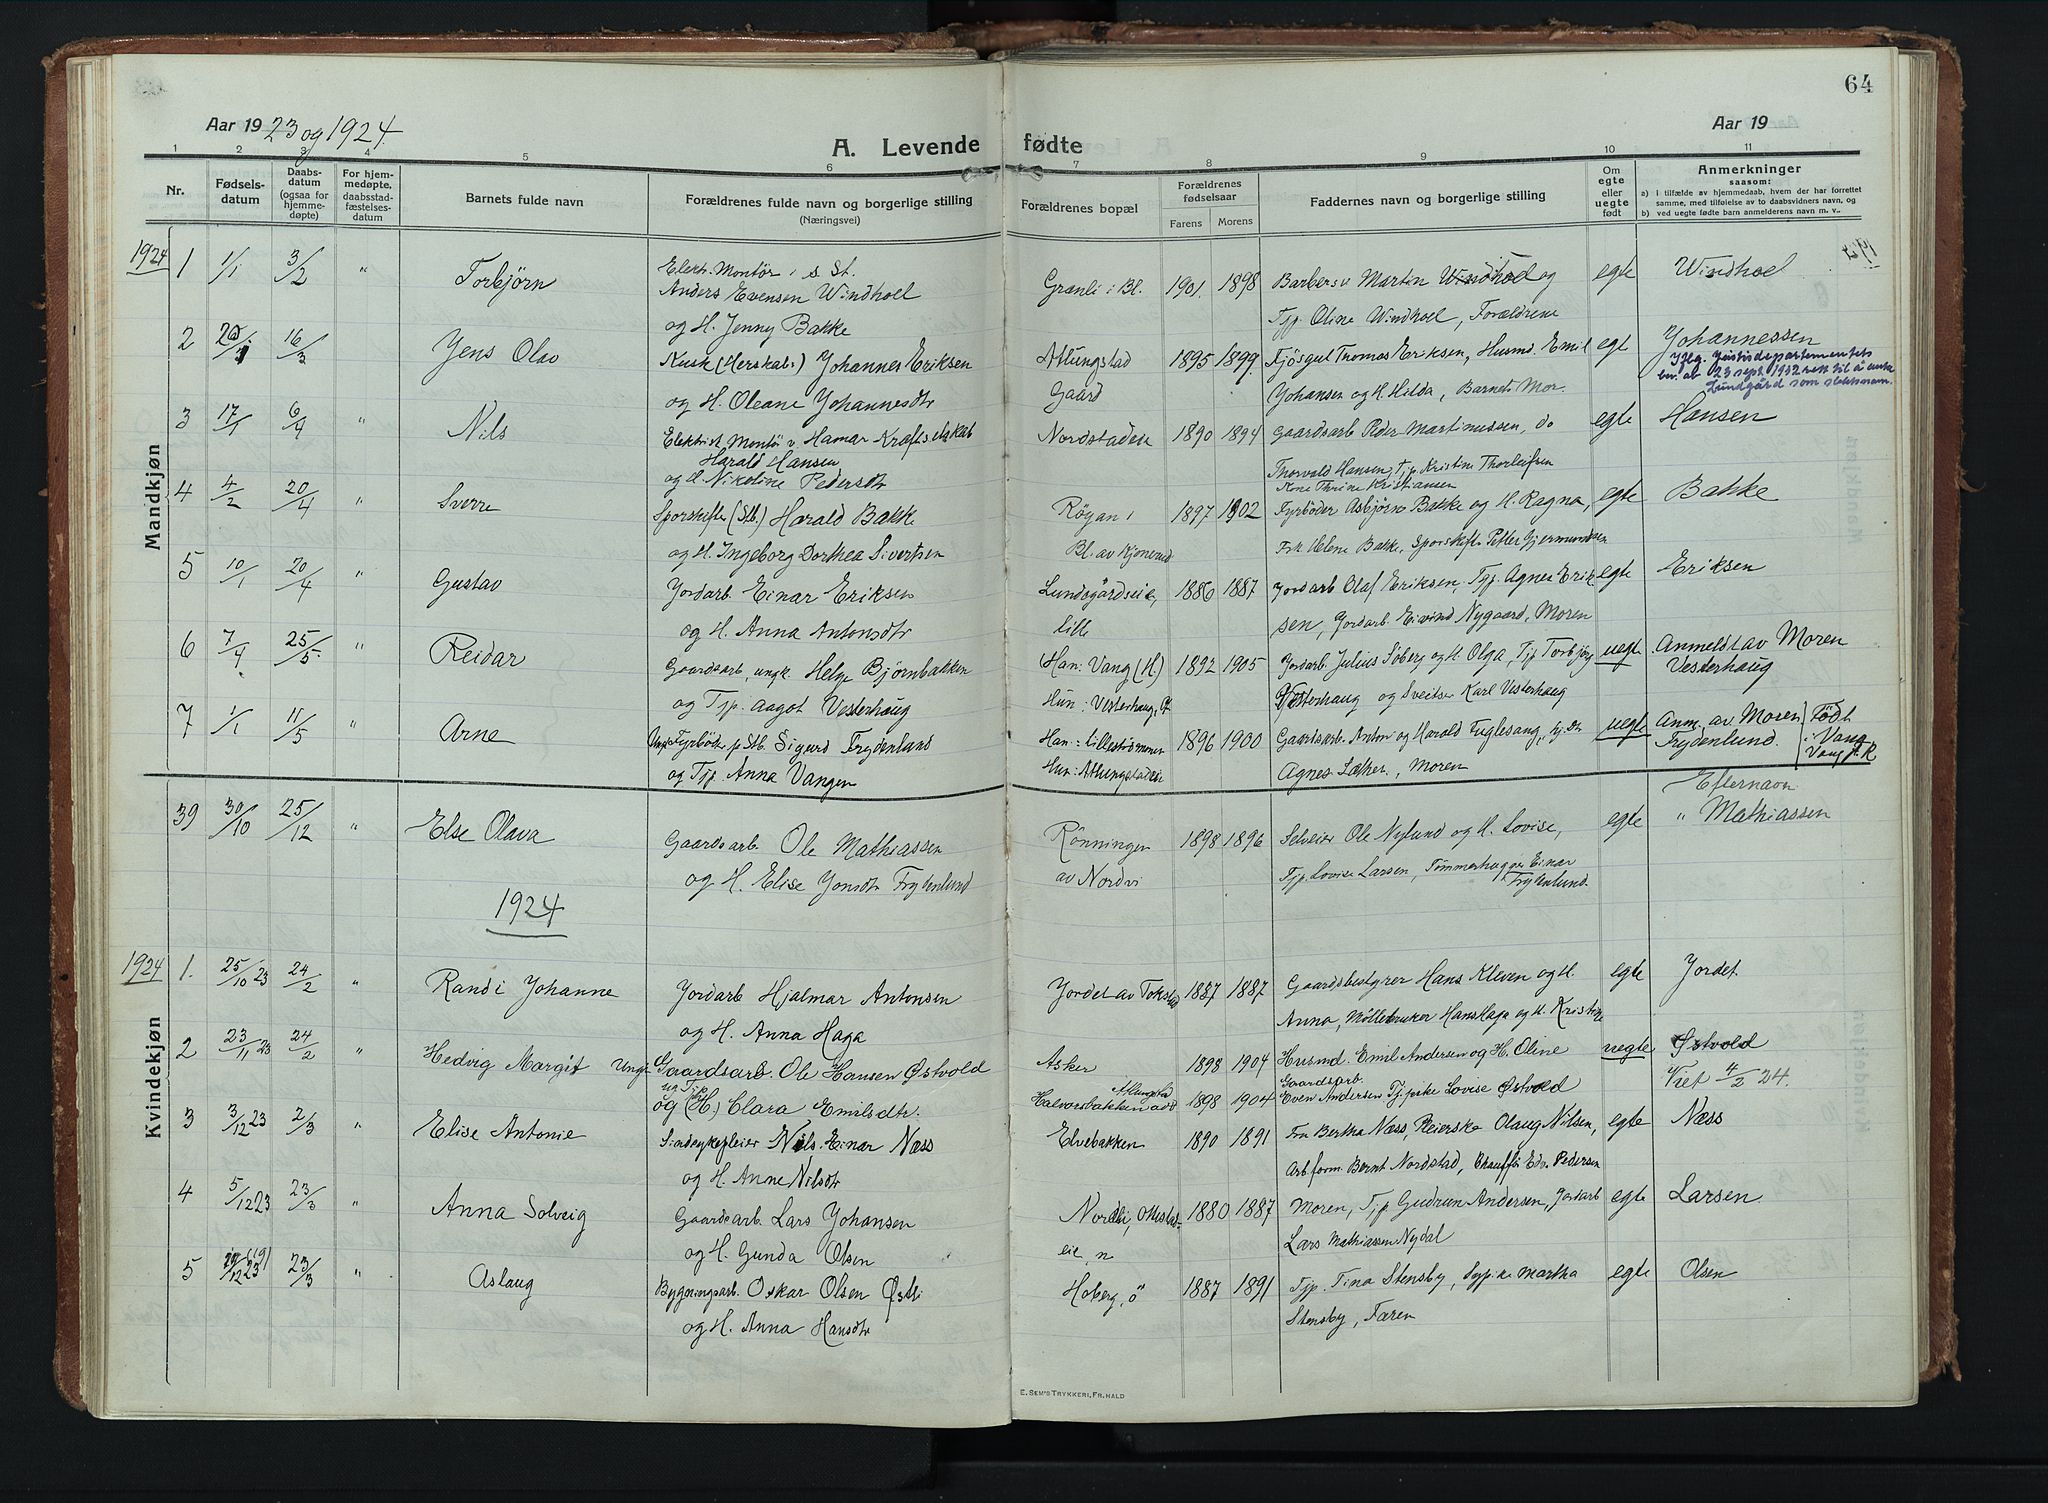 64
Aar 1923 og 1924.
A. Levende fødte
Aar 19
1 2 3 4 5 6 7 8 9 10 11
Nr.
Fødsels-datum
Daabs-datum (ogsaa for hjemme-døpte)
For hjem-medøpte, daabsstad-fæstelses-datum
Barnets fulde navn
Forældrenes fulde navn og borgerlige stilling
(Næringsvei)
Forældrenes bopæl
Forældrenes fødselsaar
Farens Morens
Faddernes navn og borgerlige stilling
Om egte eller uegte født
Anmerkninger
saasom:
a) i tilfælde av hjemmedaab, hvem der har forrettet samme, med tilføielse av to daabsvidners navn, og
b) ved uegte fødte barn anmelderens navn m. v..
Mandkjøn
1924 1 1/1 3/2 " Torbjørn Elektr. Montör i s St. Grænli i Bl. 1901. 1898 Barbersv Martin Windhoel og egte Windhoel
Anders Evensen Windhoel
og H. Jenny Bakke Tjp. Oline Windhoel, Forældrene
2 20/1 16/3 Jens Olav Kusk (Herskabs:) Johannes Eriksen Atlungstad 1895 1899 Fjøsgut Thomas Eriksen, Husmd. Emil egt Johannessen
Iflg. Justisdepartementets
bev. ab 23 sept. 1932 rett til å anta
Lundgård som slektsnavn.
og H. Oleane Johannesdtr Gaard Johansen og H. Hilda, Barnets Mor.
3 17/1 6/4 " Nils Elektrist Montö v Hamar Kraftselskab Nordstadeie 1890 1894 Gaardsarb Peder Martinussen, do egte Hansen
Harald Hansen
og H. Nikoline Pedersdtr Thorvald Hansen, Tjp. Kristine Thorleifsen
Kone Thrine Kristiansen
4 4/2 20/4 " Sverre Sporskifter (Stb.) Harald Bakke Røgan i 1897 1902 Fyrbøder Asbjørn Bakke og H. Ragna, egte Bakke
og H. Ingeborg Dorthea Sivertsen Bl. av Kjonerud Frk Helene Bakke, Sporskift. Petter Gjermundsen
5 10/1 20/4 " Gustav Jordarb. Einar Eriksen Lundsgårdseie, 1886 1887 Jordarb Olaf Eriksen, Tjp. Agnes Erik egte Eriksen
og H. Anna Antonsdtr lille sen, Jordarb. Eivind Nygaard, Moren
6 7/4 25/5. " Reidar Gaardsarb, ungk. Helge Bjørnbakken Han: Vang (H.) 1892 1905 Jordarb. Julius Søberg og H. Olga, Tjp Torbjørg uegte Anmeldt av Moren
Vesterhaug
og Tjp. Aagot Vesterhaug Hun: Vesterhaug, Vesterhaug og Sveitser Karl Vesterhaug
7 1/1 11/5 " Arne Ungk. Fyrbøder p Stb. Sigurd Frydenlund Han: Lillestrømmen 1896 1900 Gaardsarb. Anton og Harald Fuglesang, uegte Anm. av Moren Født
Frydenlund. i Vang
og Tjp. Anna Vangen Hun: Atlungstadeie Agnes Sæther, Moren
Kvindekjøn
39 30/10 25/12 " Else Olava Gaardsarb. Ole Mathiassen Rønningen 1898 1896 Selveier Ole Nylund og H. Lovise, egte Efternavn
" Mathiassen
og H. Elise Jonsdtr Frydenlund av Nordvi Tjp. Lovise Larsen, Tømmerhugger Einar
Frydenlund.
1924
1924 1. 25/10 23 24/2 " Randi Johanne Jordarb Hjalmar Antonsen Jordet av Tokstad 1887 1887 Gaardsbestyrer Hans Kleven og H. egte Jordet
og H. Anna Haga Anna, Møllebruker Hans Haga og H. Kristine
2 23/11 23 24/2 " Hedvig Margit Ungk. Gaardsarb. Ole Hansen Østvold Asker 1898 1904 Husmd. Emil Andersen og H. Oline uegte Østvold
ug Tjp.
og (H.) Clara Emilsdtr. Halvorsbakken Atlungstad 1898 1904 Gaardsarb. Even Andersen Tj. pike Lovise Østvold Viet 4/2 24.
3 3/12 23 2/3 " Elise Antonie Sindsykepleier Nils Einar Næss Elvebakken 1890 1891 Fru Bertha Næss, Pleierske Olaug Nilsen, egte Næss
og H. Anne Nilsdtr Arbform. Bernt Nordstad, Chauffør Edv. Pedersen
4 5/12 23 23/3 " Anna Solveig Gaardsarb. Lars Johansen Nordli, Ottestad- 1880 1887 Moren, Tjp Gudrun Andersen, Jordarb egte Larsen
og H. Gunda Olsen eie, n Lars Mathiassen Nydal
5 20/12 23 (19) 23/3 " Aslaug Bygningsarb. Oskar Olsen Østli Hoberg, ö 1887 1891 Tjp. Tina Stensby, Sypike Martha egte Olsen
og H. Anna Hansdtr Stensby, Faren
E. SEM'S TRYKKERI, FR. HALD